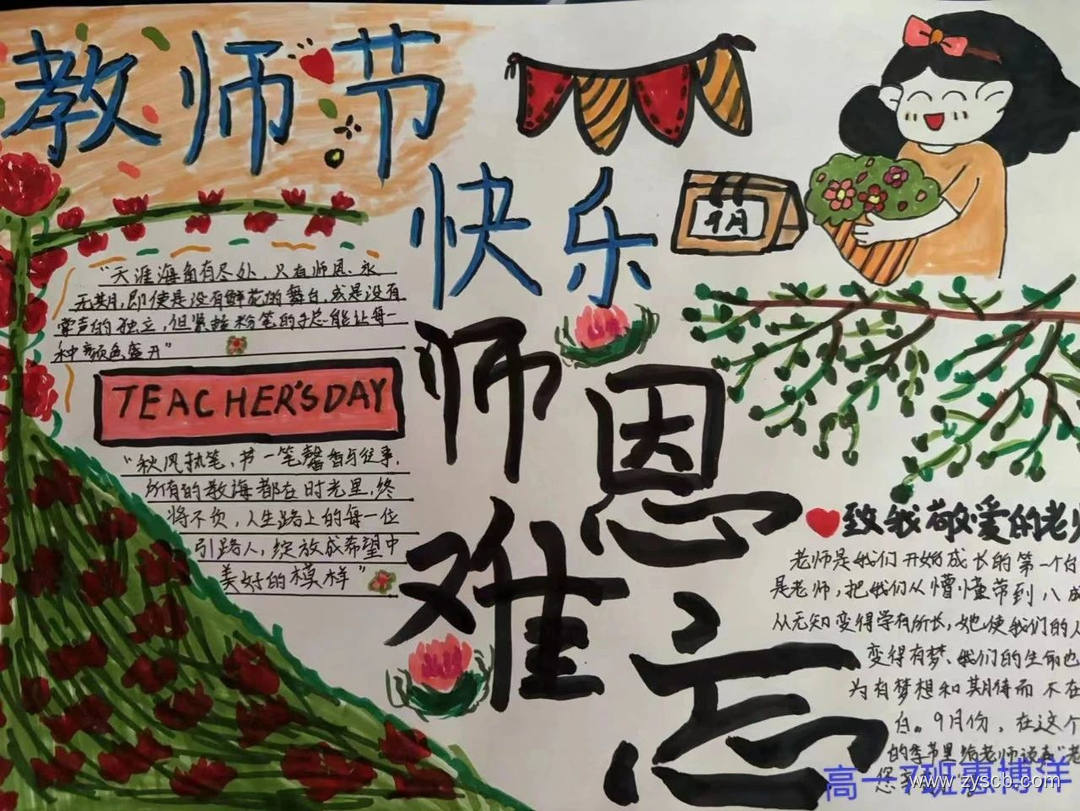 教师节
快乐
9月
"天涯海角有尽处,只有师恩、永
无期,即使是没有鲜花的舞台,或是没有
掌声的独立,但紧握粉笔的手总能让每一
种颜色盛开"
TEACHER'S DAY
"秋风执笔,节一笔馨香与往事,
所有的教诲都在时光里,终
将不负,人生路上的每一位
引路人,绽放成希望中
美好的模样"
师恩
难忘
致我敬爱的老师
老师是我们开始成长的第一个
是老师,把我们从懵懂带到
从无知变得学有所长,她使我们的
变得有梦、我们的生命也
为有梦想和期待而不在
白。9月份,在这个
的季节里给老师说声"老
您
高一7班惠博洋
www.zyscb.com